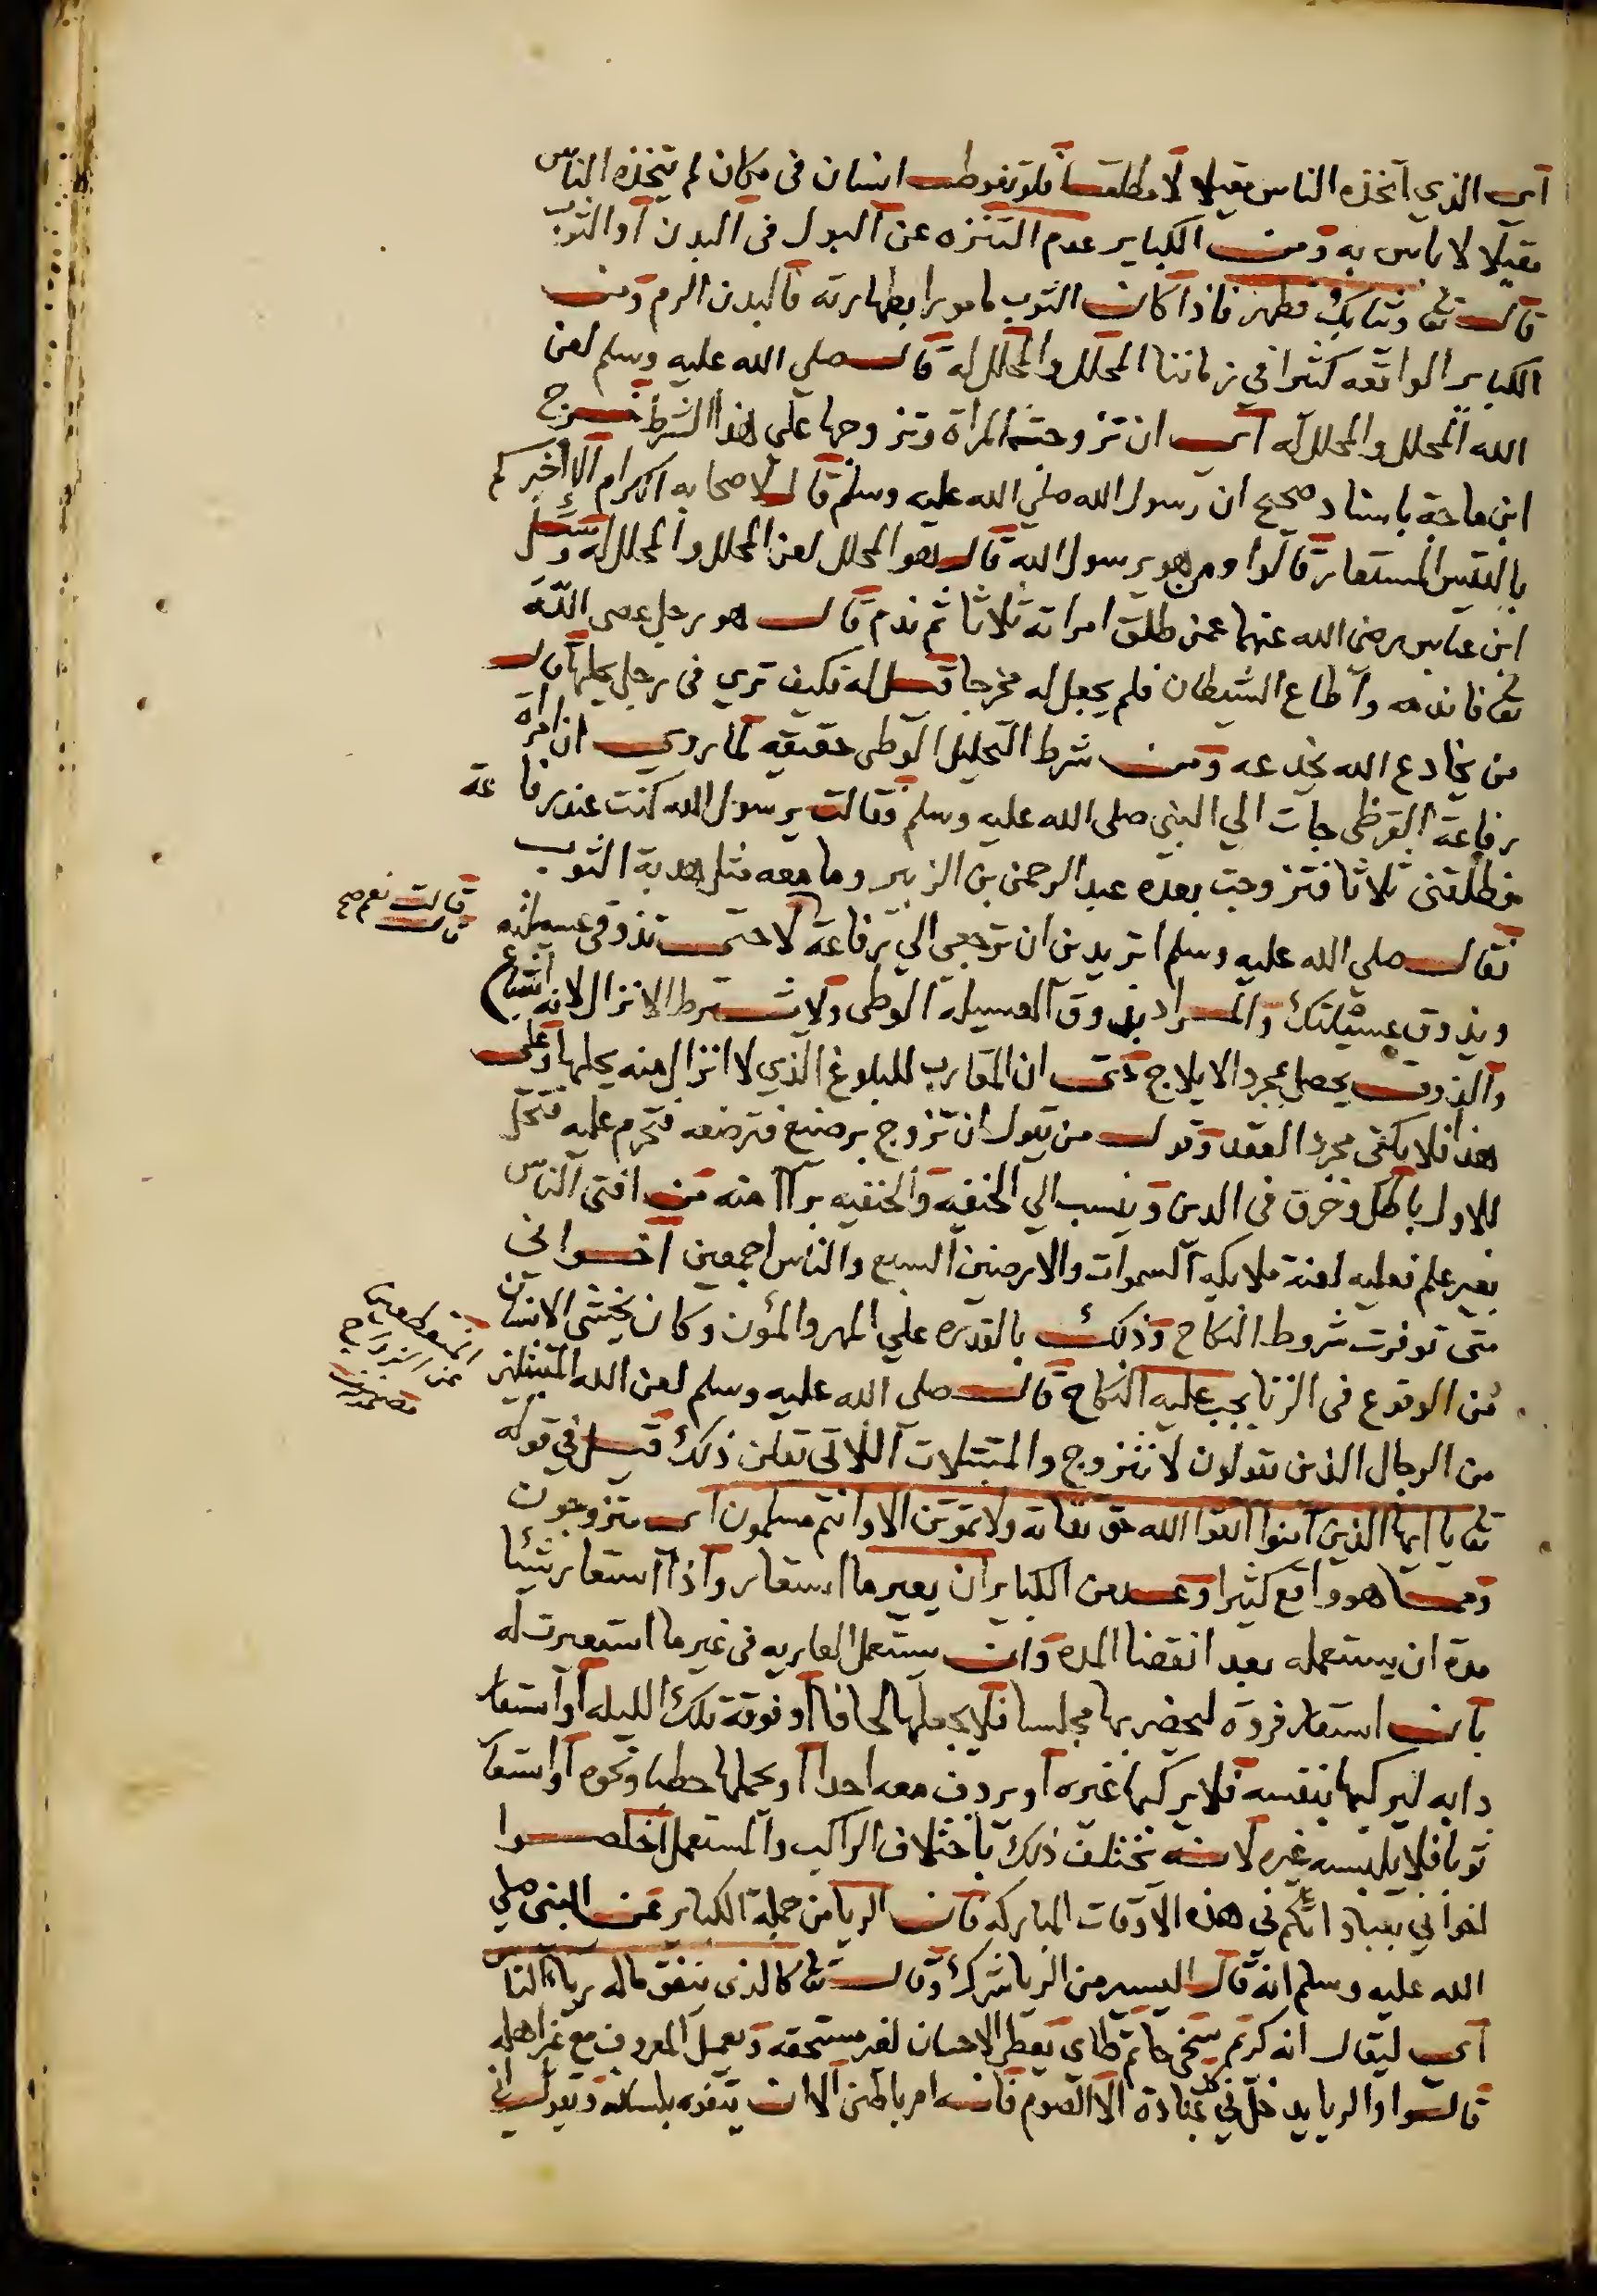 اى الذي اتخذه الناس مقيلا لا مطلقا فلو تغوط انسان فى مكان لم يتخذه الناس
مقيلا لا باس به ومن الكباير عدم التنزه عن البول فى البدن او الثوب
قال تعا وثيابك فطهر فاذا كان الثوب مامورا بطهارته فالبدن الزم ومن
الكباير الواقعه كثيرا في زماننا المحلل والمحلل له قال صلي الله عليه وسلم لعن
الله المحلل والمحلل له اى ان تزوجت المراة وتزوجها علي هذا الشرط خرج
ابن ماجة باسناد صحيح ان رسول الله صلي الله عليه وسلم قال لاصحابه الكرام الا اخبركم
بالتيس المستعار قالوا ومن هو يرسول الله قال هو المحلل لعن المحلل والمحلل له وسئل
ابن عباس رضى الله عنهما عمن طلق امراته ثلاثا ثم ندم قال هو رجل عصى الله
تعا فاندمه واطاع الشيطان فلم يجعل له مخرجا قيل له فكيف تري فى رجل يحلها قال
من يخادع الله يخدعه ومن شرط التحليل الوطى حقيقه لما روى ان امراة
رفاعة القرظى جات الي النبي صلى الله عليه وسلم فقالت يرسول الله كنت عند رفاعة
فطلقنى ثلاثا فتزوجت بعده عبد الرحمن بن الزبير وما معه مثل هدبة الثوب
فقال صلي الله عليه وسلم اتريدين ان ترجعي الي رفاعة لا حتى تذوقى عسيلته
قالت نعم صح
قال
ويذوق عسيلتك والمراد بذوق العسيلة الوطى ولا يشترط الانزال لانه اشباع
والذوق يحصل بمجرد الايلاج حتى ان المقارب للبلوغ الذي لا انزال منه يحلها وعلى
هذا فلا يكفى مجرد العقد وقول من يقول ان تزوج برضيع فترضعه فتحرم عليه فتحل
للاول باطل وخرق فى الدين وينسب الي الحنفيه والحنفيه براا منه من افتى الناس
بغير علم فعليه لعنة ملايكة السموات والارضين السبع والناس اجمعين اخوانى
متى توفرت شروط النكاح وذلك بالقدره علي المهر والمؤن وكان يخشى الانسان
من الوقوع فى الزنا يجب عليه النكاح قال صلى الله عليه وسلم لعن الله المتبتلين
المنقطعين
عن الزواج
من الرجال الذين يقولون لا نتزوج والمتبتلات اللاتى تقلن ذلك قيل في قوله
تعا يا ايها الذين امنوا اتقوا الله حق تقاته ولا تموتن الا وانتم مسلمون اى متزوجون
ومما هو واقع كثيرا وعد من الكباير ان يعير ما استعار واذا استعار شيئا
مدة ان يستعمله بعد انقضا المده وان يستعمل العاريه فى غير ما استعيرت له
بان استعار فروة ليحضر بها مجلسا فلا يجعلها لحافا او فوقه تلك الليله او استعار
دابه ليركبها بنفسه فلا يركبها غيره او يردف معه احدا او يحملها حطبا ونحوه او استعار
ثوبا فلا يلبسه غيره لانه يختلف ذلك باختلاف الراكب والمستعمل اخلصوا
اخواني بعباداتكم فى هذه الاوقات المباركه فان الريا من جملة الكباير عن النبى صلي
الله عليه وسلم انه قال اليسير من الريا شرك وقال تعا كالذى ينفق ماله رياء الناس
اى ليقال انه كريم سخى حاتم طاى يعطى الاحسان لغير مستحقه ويعمل المعروف مع غير اهله
قالوا والريا يدخل في كل عبادة الا الصوم فانه امر باطنى الا ان يتفوه بلسانه ويقول انى